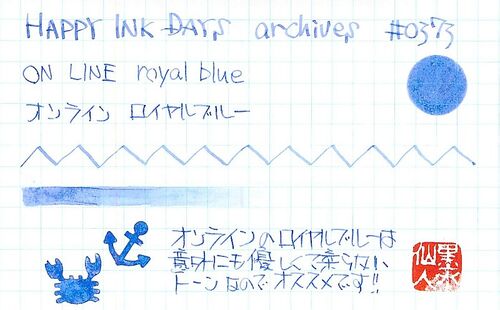 HAPPY INK DAYS archives #0373
ON LINE royal blue
オンライン ロイヤルブルー
オンラインのロイヤルブルーは
意外にも優しくて柔らない
トーンなのでオススメです!!
墨水
仙人